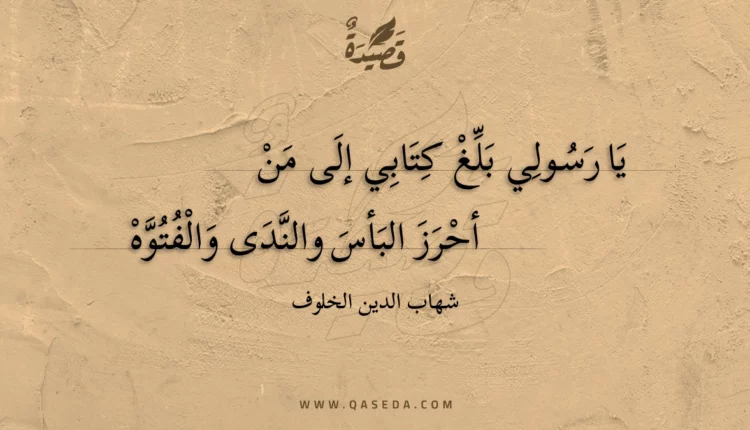 قَصِيدَةٌ
يَا رَسُولِي بَلِّغْ كِتَابِي إلَى مَنْ
أحْرَزَ البَأسَ والنَّدَى وَالْفُتُوَّهْ
شهاب الدين الخلوف
WWW.QASEDA.COM